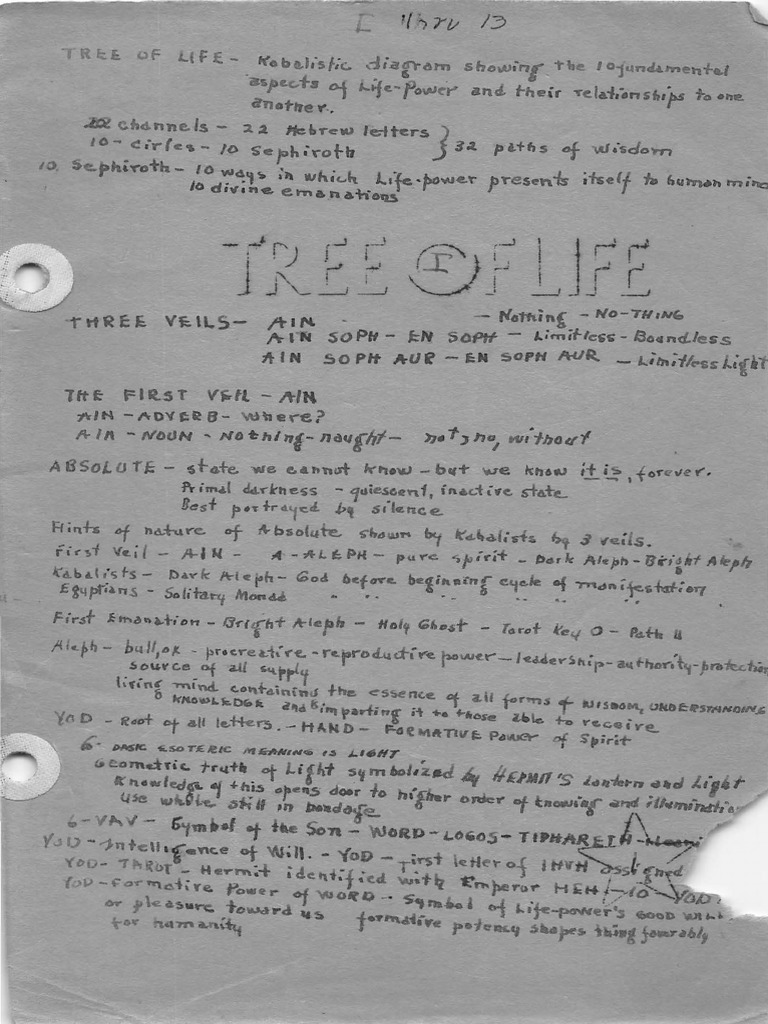 I thru 13
TREE OF LIFE - Kabalistic diagram showing the 10 fundamental
aspects of Life-Power and their relationships to one
another.
22 channels - 22 Hebrew letters
10 - cirfes - 10 Sephiroth } 32 paths of wisdom
10 Sephiroth - 10 ways in which Life-power presents itself to human mind
10 divine emanations
TREE OF LIFE
I
THREE VEILS - AIN - Nothing - NO-THING
AIN SOPH - EN SOPH - Limitless - Boundless
AIN SOPH AUR - EN SOPH AUR - Limitless Light
THE FIRST VEIL - AIN
AIN - ADVERB - Where?
AIN - NOUN - Nothing - naught - not, no, without
ABSOLUTE - state we cannot know - but we know it is, forever.
Primal darkness - quiescent, inactive state
Best portrayed by silence
Hints of nature of Absolute shown by Kabalists by 3 veils.
First Veil - AIN - A - ALEPH - pure spirit - Dark Aleph - Bright Aleph
Kabalists - Dark Aleph - God before beginning cycle of manifestation
Egyptians - Solitary Monad " " " " "
First Emanation - Bright Aleph - Holy Ghost - Tarot Key 0 - Path 11
Aleph - bull, ox - procreative - reproductive power - leadership - authority - protection
source of all supply
living mind containing the essence of all forms of WISDOM, UNDERSTANDING
& KNOWLEDGE and imparting it to those able to receive
YOD - Root of all letters. - HAND - FORMATIVE POWER of Spirit
6 - BASIC ESOTERIC MEANING IS LIGHT
Geometric truth of Light symbolized by HERMIT'S Lantern and Light
Knowledge of this opens door to higher order of knowing and illumination
Use whole still in bondage
6 - VAV - Symbol of the Son - WORD - LOGOS - TIPHARETH
YOD - Intelligence of Will. - YOD - First letter of IHVH assigned
YOD - TAROT - Hermit identified with Emperor HEH - 10 - YOD
YOD - Formative Power of WORD - Symbol of Life-power's GOOD WILL
or pleasure toward us formative potency shapes thing favorably
for humanity